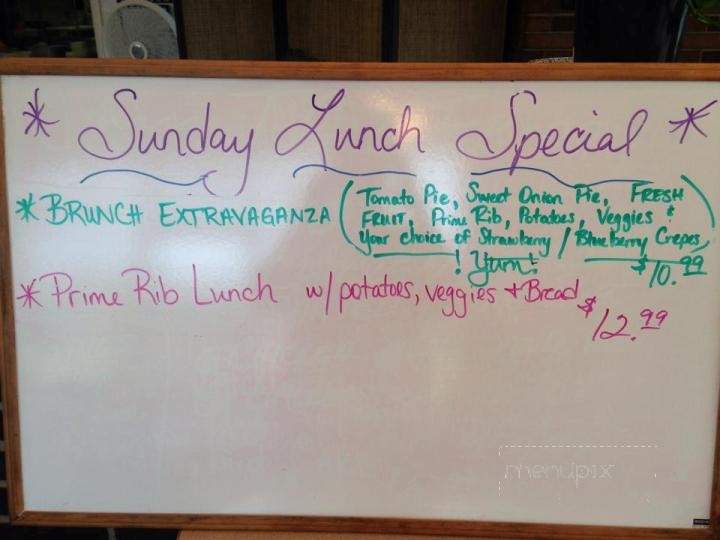 * Sunday Lunch Special *
* BRUNCH EXTRAVAGANZA (Tomato Pie, Sweet Onion Pie, FRESH
FRUIT, Prime Rib, Potatoes, Veggies &
Your choice of Strawberry / Blueberry Crepes)
! Yum! $10.99
* Prime Rib Lunch w/ potatoes, veggies + Bread $12.99
menupix